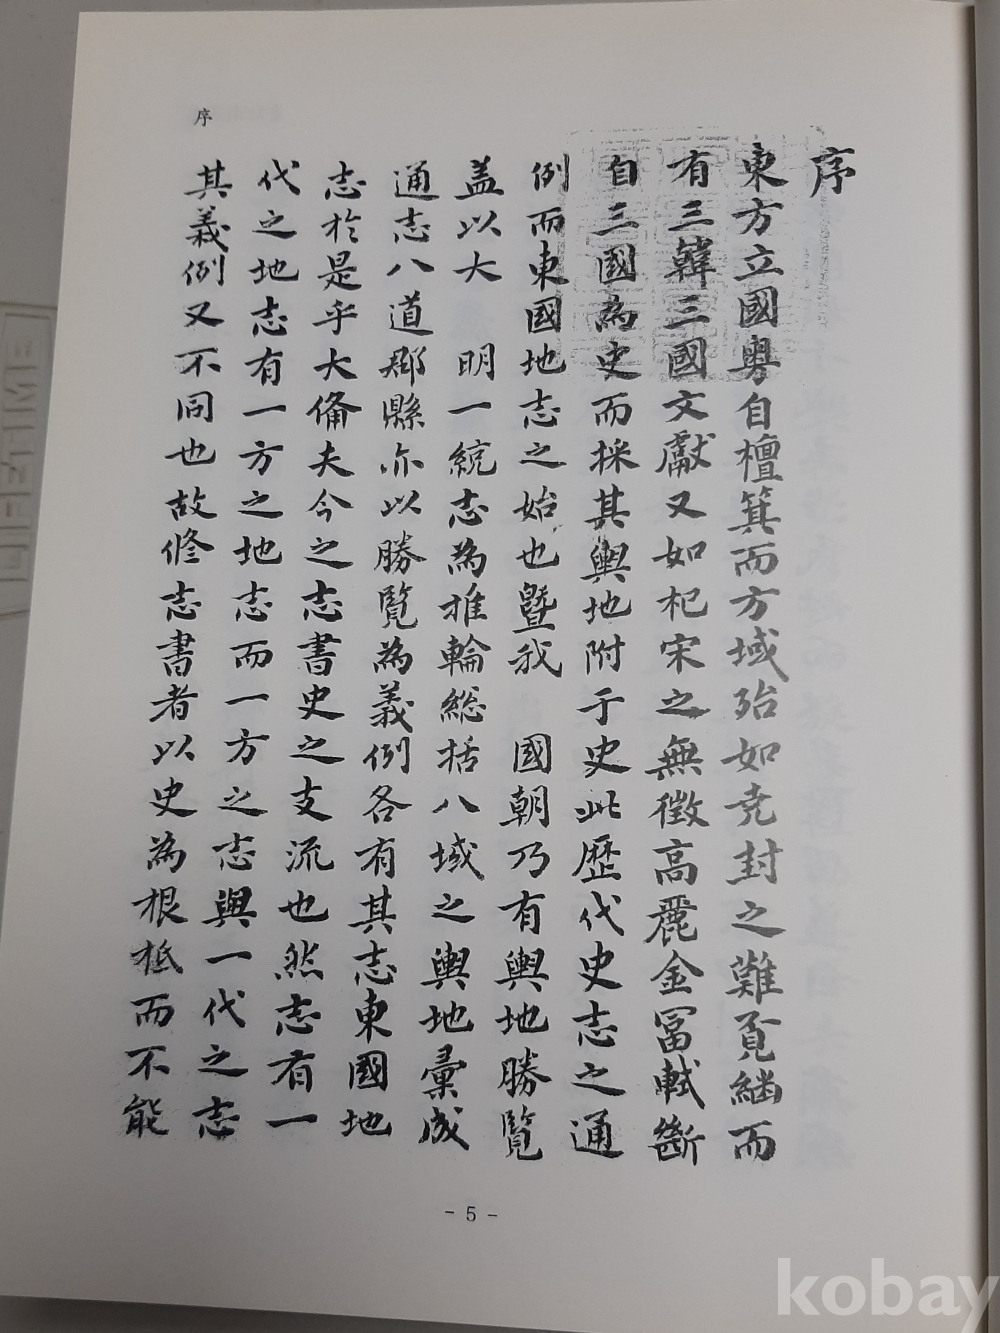 序
序
東方立國粤自檀箕而方域殆如尭封之難覔継而
有三韓三國文獻又如杞宋之無徴高麗金冨軾斷
自三國為史而採其輿地附于史此歴代史志之通
例而東國地志之始也曁我 國朝乃有輿地勝覧
盖以大 明一統志為推輪総括八域之輿地彙成
通志八道郡縣亦以勝覧為義例各有其志東國地
志於是乎大俻夫今之志書史之支流也然志有一
代之地志有一方之地志而一方之志與一代之志
其義例又不同也故修志書者以史為根柢而不能
- 5 -
kobay